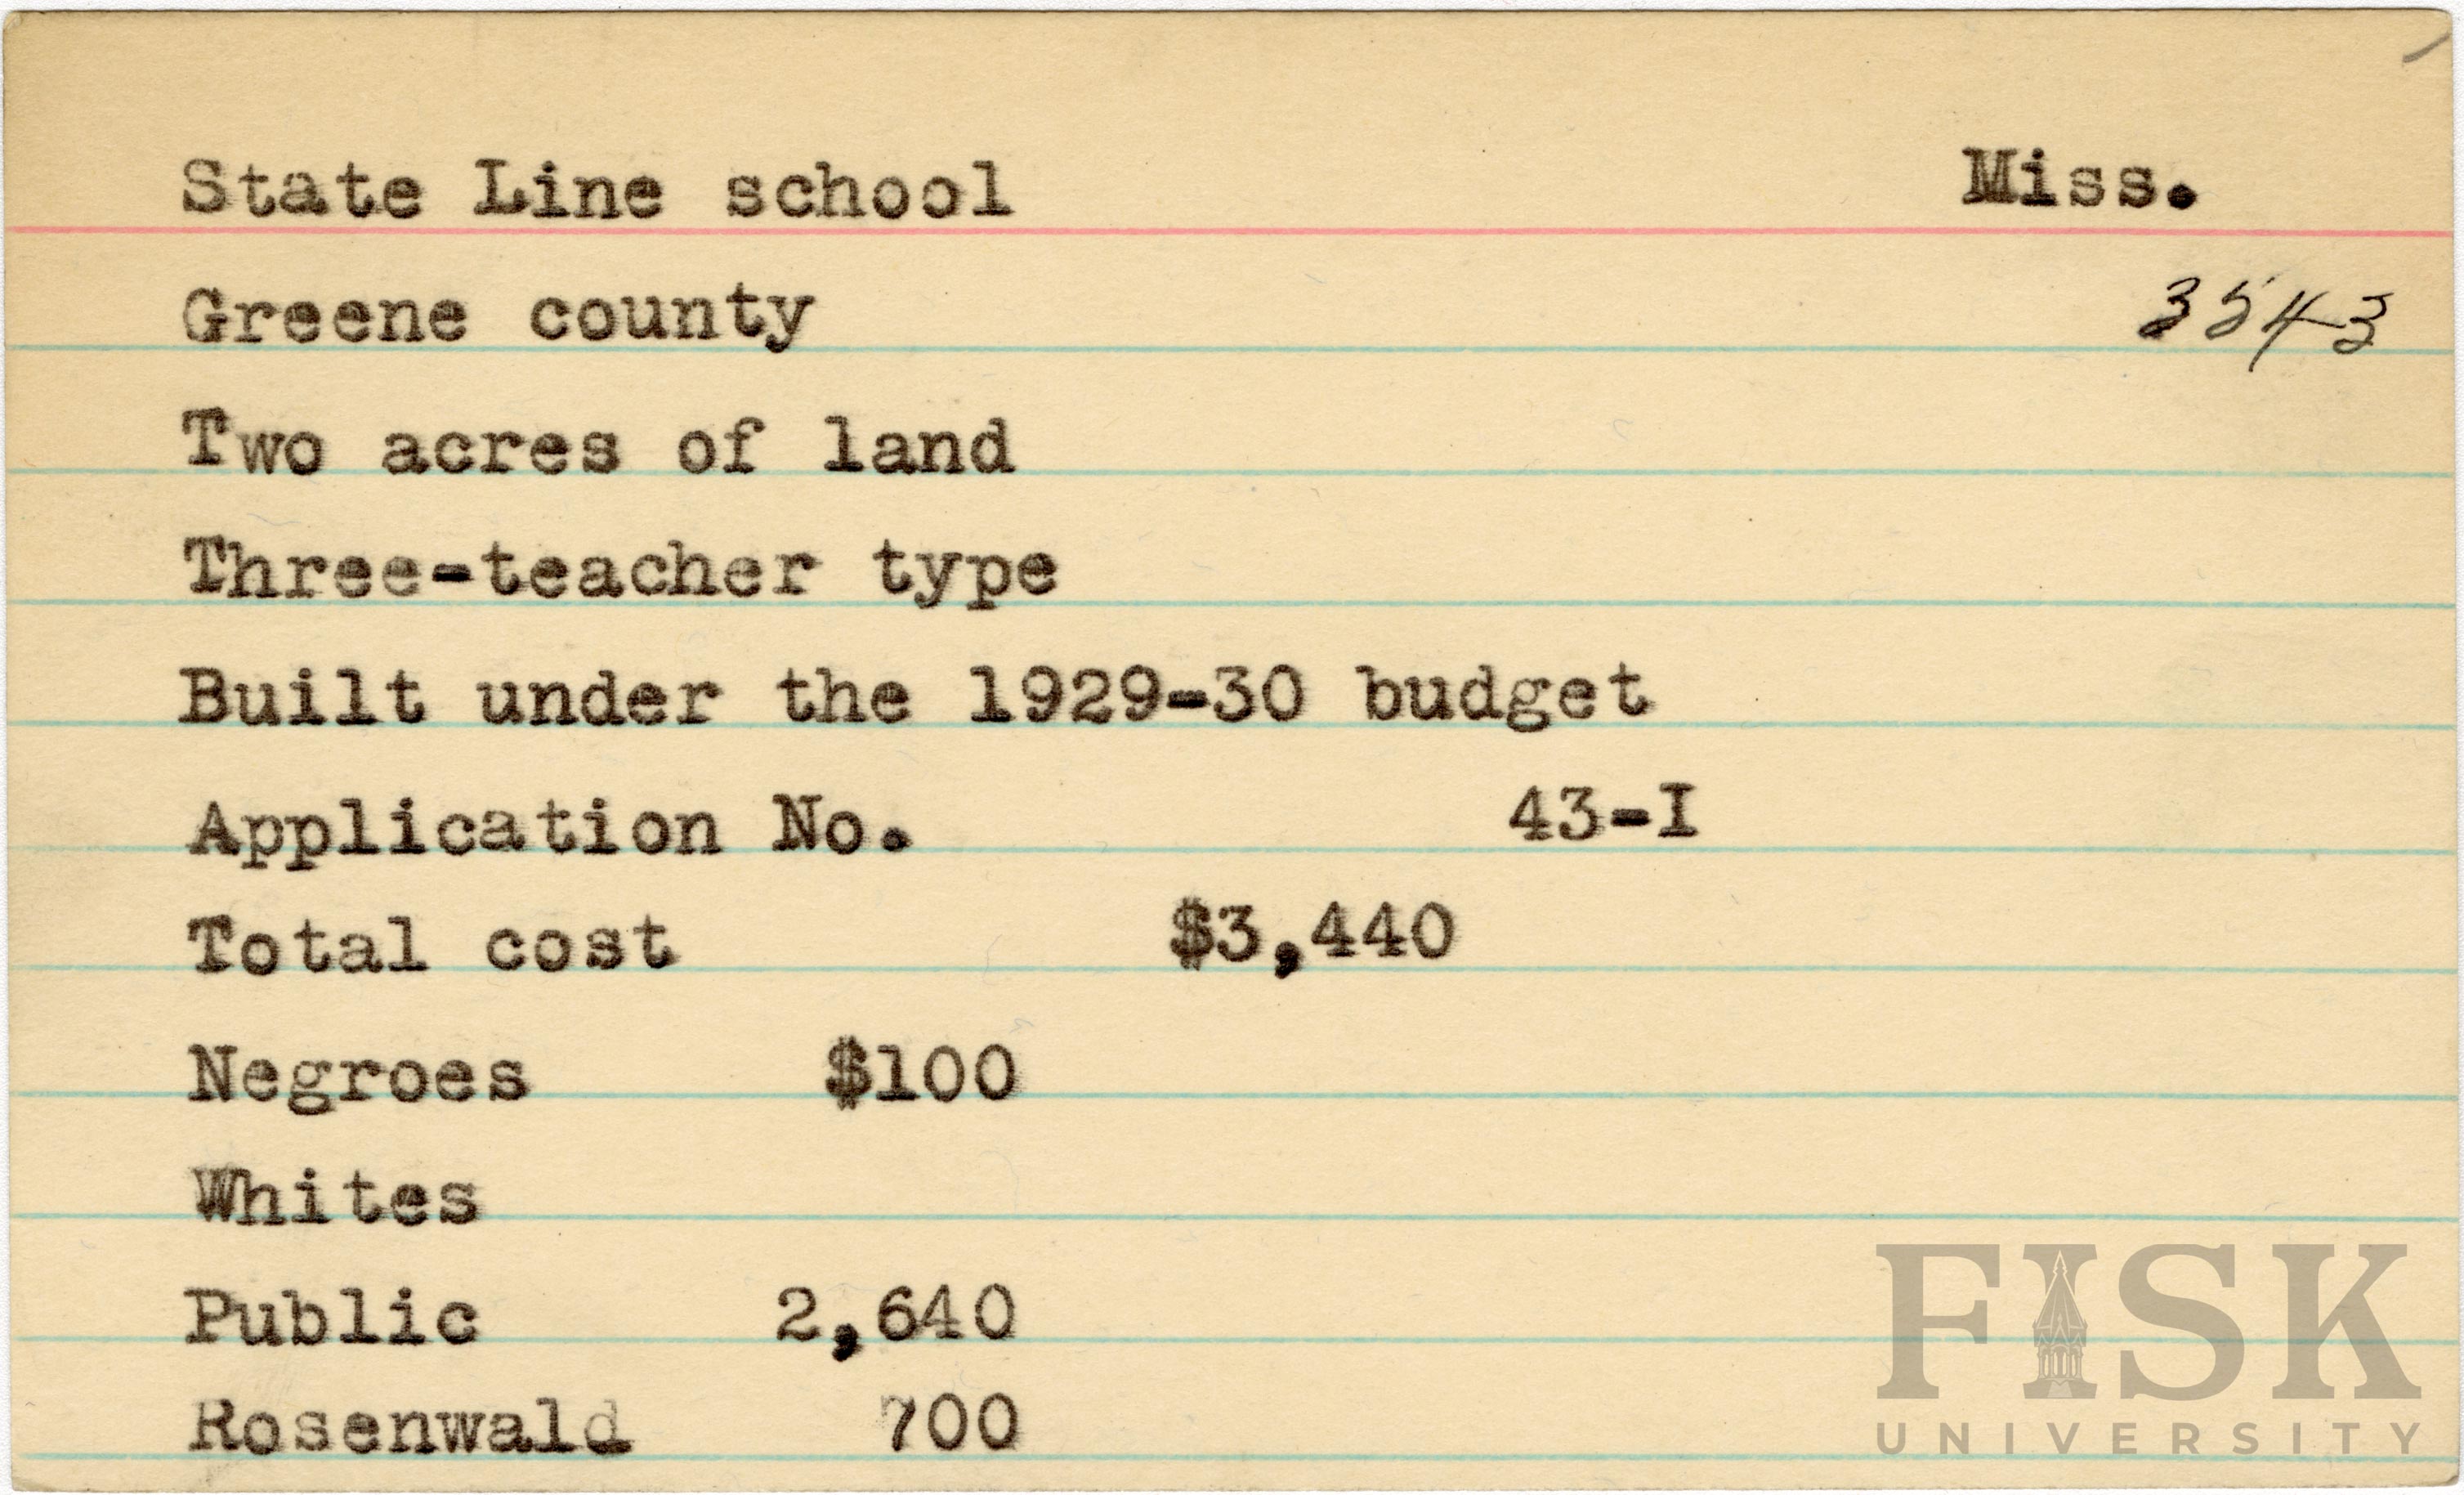 State Line school Miss.
Greene county 3543
Two acres of land
Three-teacher type
Built under the 1929-30 budget
Application No. 43-I
Total cost $3,440
Negroes $100
Whites
Public 2,640
Rosenwald 700
FISK
UNIVERSITY